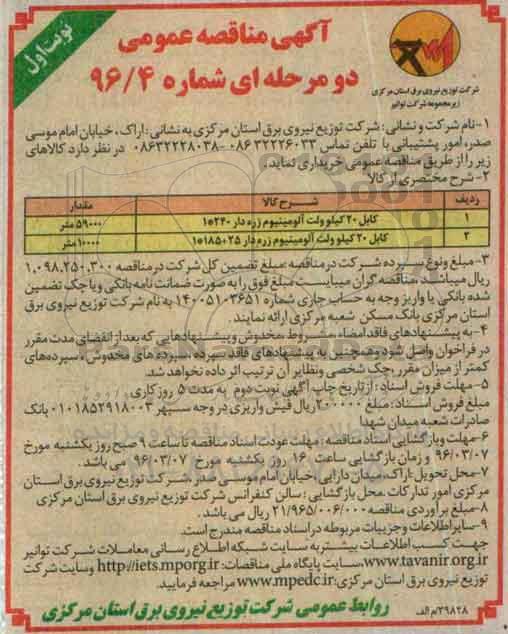 نوبت اول
آگهی مناقصه عمومی
دو مرحله ای شماره ۹۶/۴
شرکت توزیع نیروی برق استان مرکزی
زیرمجموعه شرکت توانیر
۱-نام شرکت و نشانی: شرکت توزیع نیروی برق استان مرکزی به نشانی: اراک، خیابان امام موسی
صدر، امور پشتیبانی با تلفن تماس ۰۸۶۳۲۲۲۶۰۳۳-۰۸۶۳۲۲۲۸۰۳۸ در نظر دارد کالاهای
زیر را از طریق مناقصه عمومی خریداری نماید.
۲-شرح مختصری از کالا
ردیف شرح کالا مقدار
۱ کابل ۲۰ کیلو ولت آلومینیوم زره دار ۲۴۰*۱ ۵۹۰۰۰ متر
۲ کابل ۲۰ کیلو ولت آلومینیوم زره دار ۲۵+۱۸۵*۱ ۱۰۰۰۰ متر
۳- مبلغ و نوع سپرده شرکت در مناقصه: مبلغ تضمین کل شرکت در مناقصه ۱,۰۹۸,۲۵۰,۳۰۰
ریال میباشد، مناقصه گران میبایست مبلغ فوق را به صورت ضمانت نامه بانکی و یا چک تضمین
شده بانکی یا واریز وجه به حساب جاری شماره ۱۴۰۰۵۱۰۳۶۵۱ به نام شرکت توزیع نیروی برق
استان مرکزی بانک مسکن شعبه مرکزی ارائه نمایند.
۴- به پیشنهادهای فاقد امضاء، مشروط، مخدوش و پیشنهادهایی که بعد از انقضای مدت مقرر
در فراخوان واصل شود و همچنین به پیشنهادهای فاقد سپرده، سپرده های مخدوش، سپرده‌های
کمتر از میزان مقرر، چک شخصی و نظایر آن ترتیب اثر داده نخواهد شد.
۵-مهلت فروش اسناد: از تاریخ چاپ آگهی نوبت دوم به مدت ۵ روز کاری
مبلغ فروش اسناد: مبلغ ۲۰۰۰۰۰ ریال فیش واریزی در وجه سپهر ۰۱۰۱۸۵۲۹۱۸۰۰۳ بانک
صادرات شعبه میدان شهدا
۶-مهلت و بازگشایی اسناد مناقصه: مهلت عودت اسناد مناقصه تا ساعت ۹ صبح روز یکشنبه مورخ
۹۶/۰۳/۰۷ و زمان بازگشایی ساعت ۱۶ روز یکشنبه مورخ ۹۶/۰۳/۰۷ می باشد.
۷-محل تحویل: اراک، میدان دارایی، خیابان امام موسی صدر، شرکت توزیع نیروی برق استان
مرکزی امور تدارکات، محل بازگشایی: سالن کنفرانس شرکت توزیع نیروی برق استان مرکزی
۸-مبلغ برآوردی مناقصه ۲۱/۹۶۵/۰۰۶/۰۰۰ ریال می باشد.
۹-سایر اطلاعات و جزییات مربوطه در اسناد مناقصه مندرج است.
جهت کسب اطلاعات بیشتر به سایت شبکه اطلاع رسانی معاملات شرکت توانیر
www.tavanir.org.ir، سایت پایگاه ملی مناقصات: http://iets.mporg.ir و سایت شرکت
توزیع نیروی برق استان مرکزی: www.mpedc.ir مراجعه فرمایید.
۲۹۸۲۸/م الف
روابط عمومی شرکت توزیع نیروی برق استان مرکزی